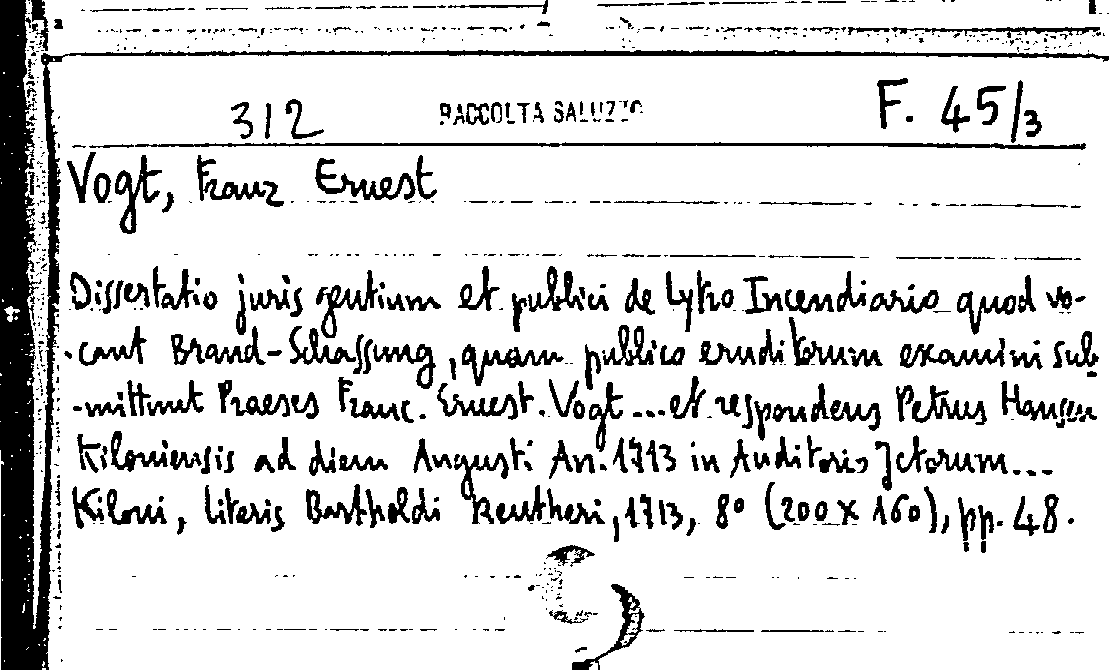 312 RACCOLTA SALUZZO F. 45/3
Vogt, Franz Ernest
Dissertatio juris gentium et publici de Lytro Incendiario quod vo-
-cant Brand-Schassung, quam publico eruditorum examini sub
-mittunt Praeses Franc. Ernest. Vogt...et respondens Petrus Hansen
Kiloniensis ad diem Augusti An. 1713 in Auditorio Jctorum...
Kiloni, literis Bartholdi Reutheri, 1713, 8° (200 x 160), pp. 48.